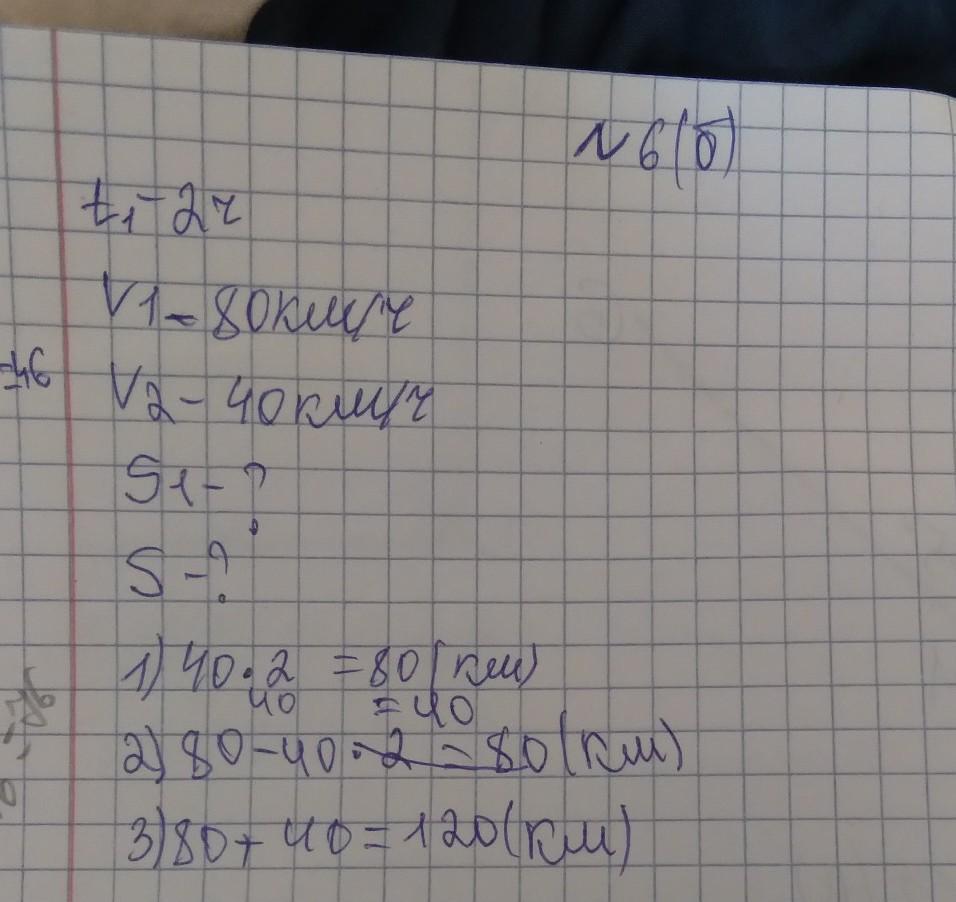 N 6(б)
t1 - 2ч
V1 - 80км/ч
=46
V2 - 40км/ч
S1 - ?
S - ?
1) 40 · 2 = 80(км)
40 = 40
2) 80 - 40 · 2 = 80(км)
3) 80 + 40 = 120(км)